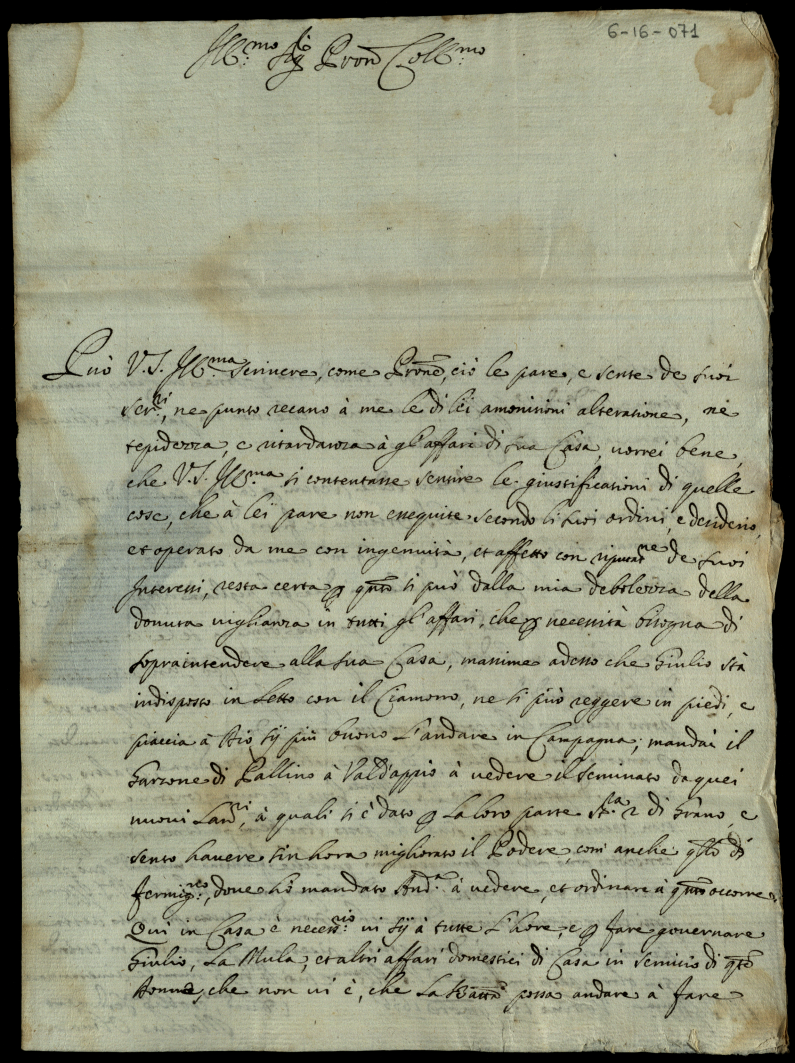 6-16-071
Ill:mo Sig Pron Coll:mo
Può V.S. Ill:ma scrivere, come Prone, ciò le pare, e sente de suoi
ser:ri, ne punto recano à me le di lei amonitioni alteratione, nè
tepidezza, e ritardanza à gl'affari di sua Casa, vorrei bene,
che V.S. Ill:ma si contentasse sentire le giustificationi di quelle
cose, che à lei pare non esequite secondo li suoi ordini, e desiderio,
et operato da me con ingenuità, et affetto con de suoi
Interessi, resta certa p qnto si può dalla mia debolezza della
dovuta viglianza in tutti gl'affari, che p necessità bisogna di
sopraintendere alla sua Casa, massime adesso che Giulio stà
indisposto in Letto con il Ciamorro, ne si può reggere in piedi, e
piaccia à Dio sij più buono l'andare in Campagna; mandai il
Garzone di Pallino à Vald'appio à vedere il seminato da quei
nuovi Lau:ri, à quali si è dato p la loro parte st:ra 2 di Grano, e
sento havere sin hora migliorato il Podere, com' anche qsto di
fermig:no, dove hò mandato And:a à vedere, et ordinare à qnto occorre
Qui in Casa è necess:rio vi sij à tutte l'hore, e p fare governare
Giulio, la Mula, et altri affari domestici di Casa in servitio di qste
Donne, che non vi è, che la possa andare à fare